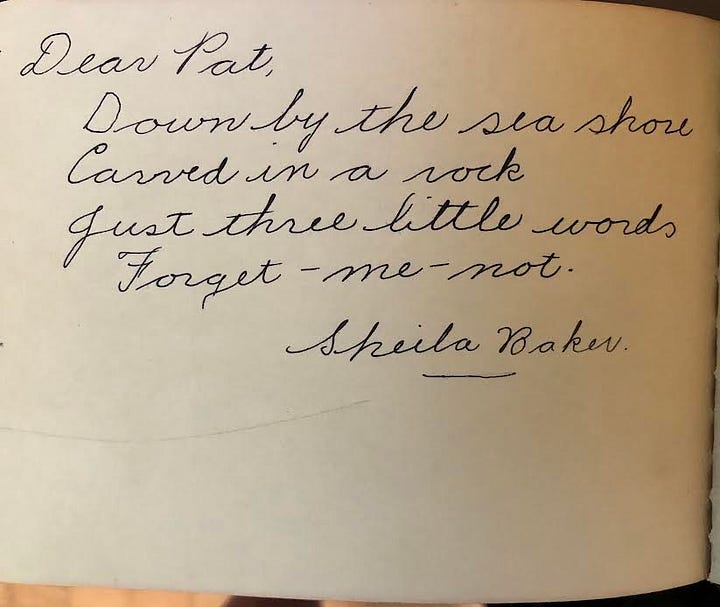 Dear Pat,
Down by the sea shore
Carved in a rock
Just three little words
Forget-me-not.
Sheila Baker.